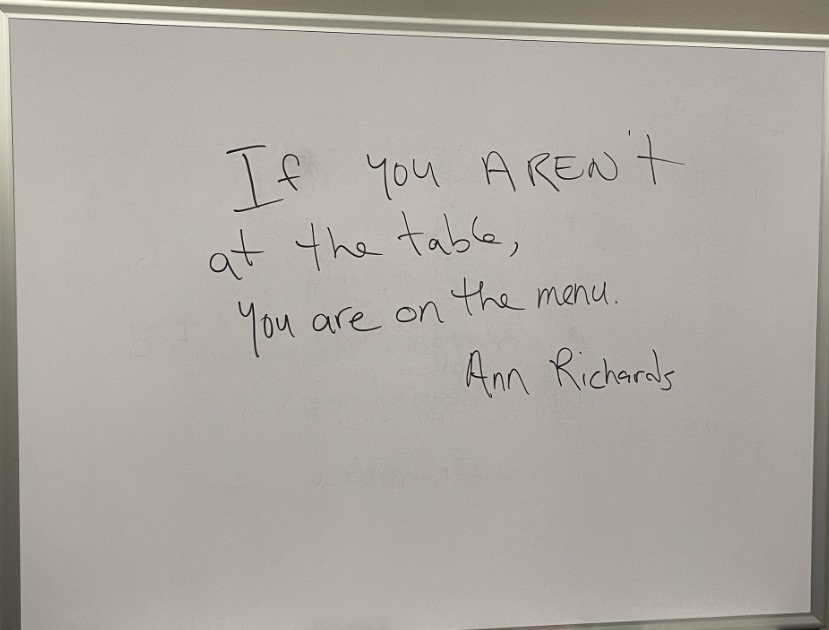 If you AREN't
at the table,
you are on the menu.
Ann Richards